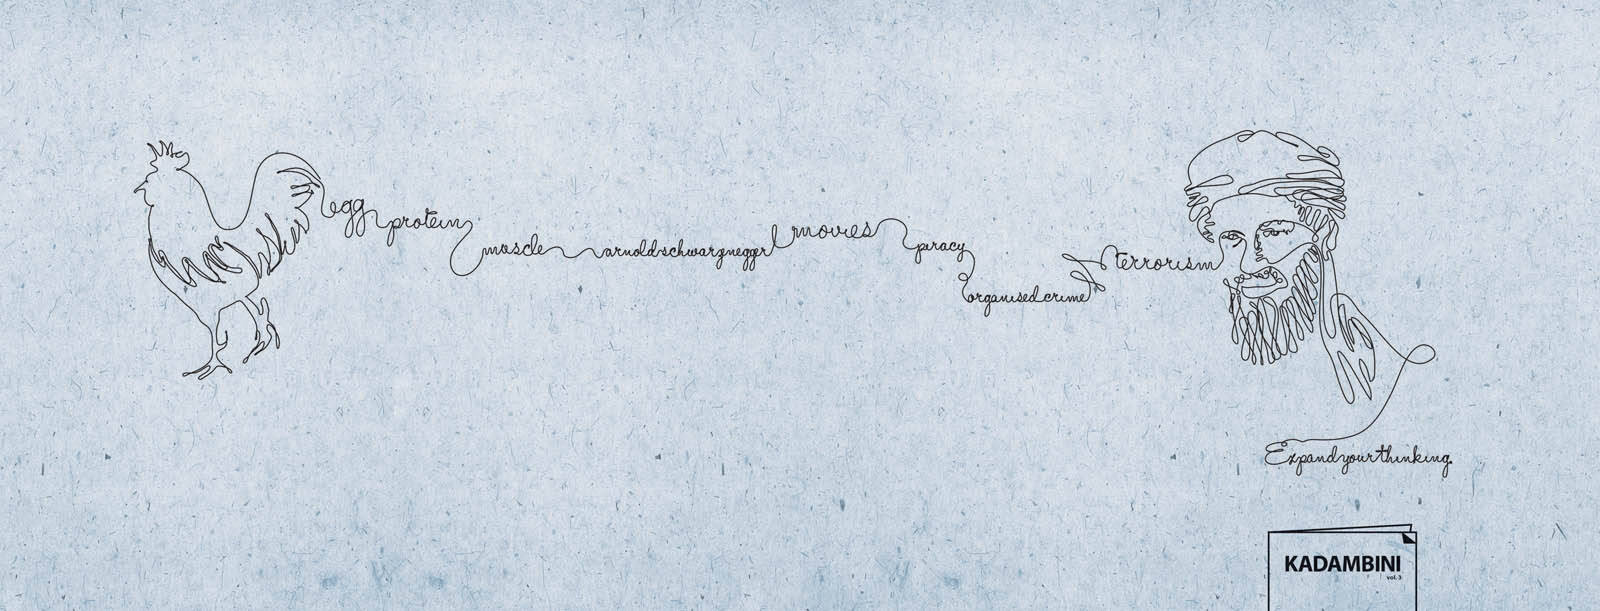 egg protein muscle arnold schwarznegger movies piracy organised crime terrorism
Expand your thinking.
KADAMBINI
vol. 3